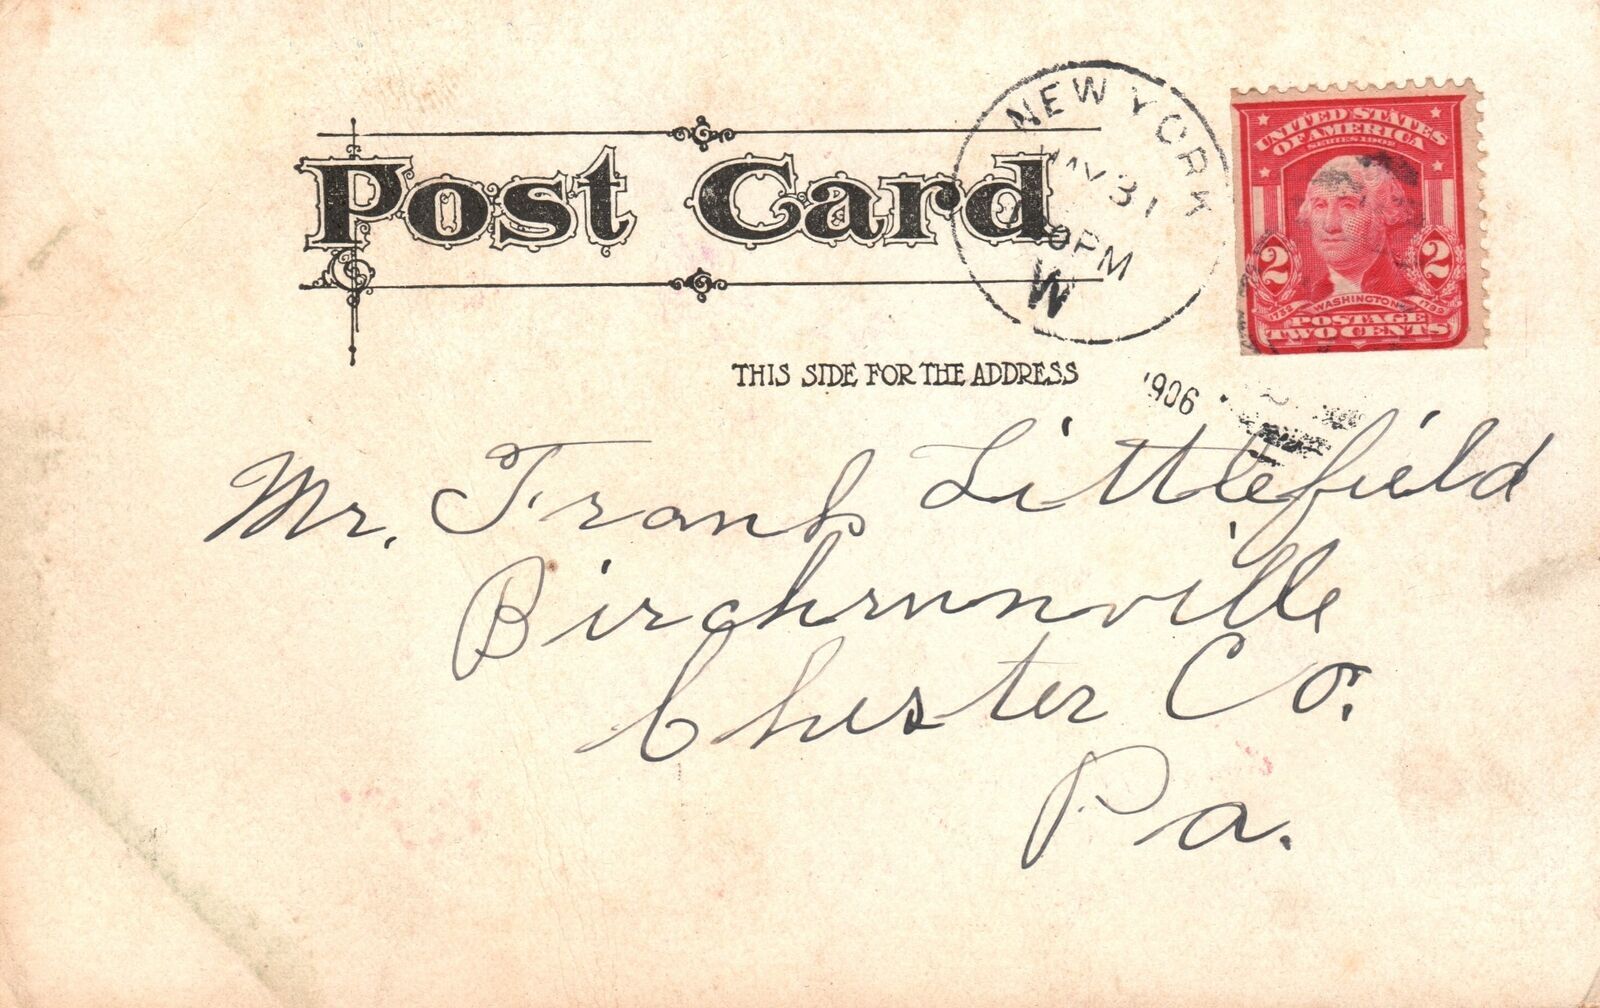 Post Card
THIS SIDE FOR THE ADDRESS
NEW YORK
MAY 31
PM
W
1906
UNITED STATES
OF AMERICA
SERIES 1902
2 2
1732 WASHINGTON 1799
POSTAGE
TWO CENTS
Mr. Frank Littlefield
Birchrunville
Chester Co.
Pa.